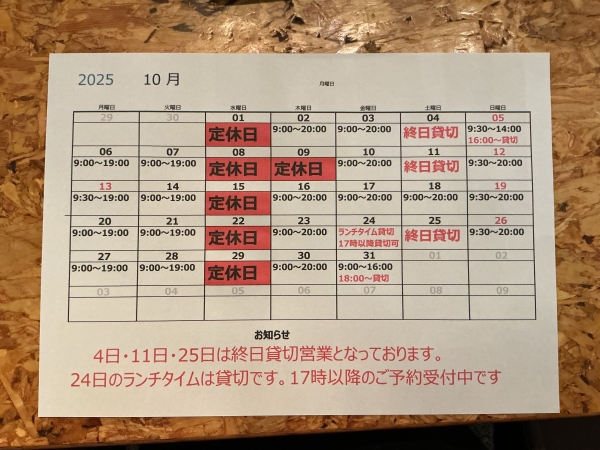 2025 10 月
月曜日
月曜日 火曜日 水曜日 木曜日 金曜日 土曜日 日曜日
29 30 01 02 03 04 05
定休日 9:00～20:00 9:00～20:00 終日貸切 9:30～14:00
16:00～貸切
06 07 08 09 10 11 12
9:00～19:00 9:00～19:00 定休日 定休日 9:00～20:00 終日貸切 9:30～20:00
13 14 15 16 17 18 19
9:30～19:00 9:00～19:00 定休日 9:00～20:00 9:00～20:00 9:00～20:00 9:30～20:00
20 21 22 23 24 25 26
9:00～19:00 9:00～19:00 定休日 9:00～20:00 ランチタイム貸切 終日貸切 9:30～20:00
17時以降貸切可
27 28 29 30 31 01 02
9:00～19:00 9:00～19:00 定休日 9:00～20:00 9:00～16:00
18:00～貸切
03 04 05 06 07 08 09
お知らせ
4日・11日・25日は終日貸切営業となっております。
24日のランチタイムは貸切です。17時以降のご予約受付中です